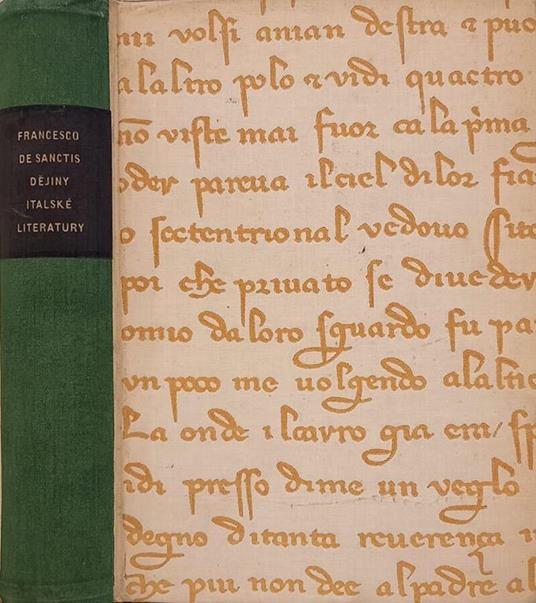 FRANCESCO
DE SANCTIS
DĚJINY
ITALSKÉ
LITERATURY
mi volsi aman destra & puo
alaltro polo & vidi quactro
nō viste mai fuor ca la p̄ma
oder pareua ilciel dilor fia
o sectentrional vedouo sito
poi che priuato se diueder
omio da loro sguardo fu pa
un poco me uolgendo alaltro
La onde ilcarro gia em/ sp
idi presso dime un veglo
degno ditanta reuerença i
che piu non dee alpadre al